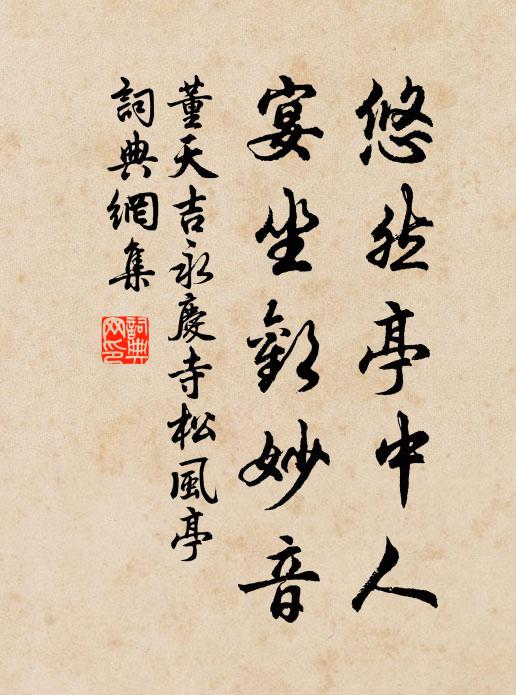 悠然亭中人
宴坐觀妙音
董天吉永慶寺松風亭
詞典網集
詞典
网印